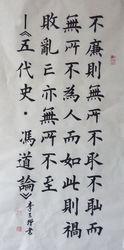 不廉則無所不取不耻而
無所不為人而如此則禍
敗亂亡亦無所不至
—《五代史·馮道論》李書